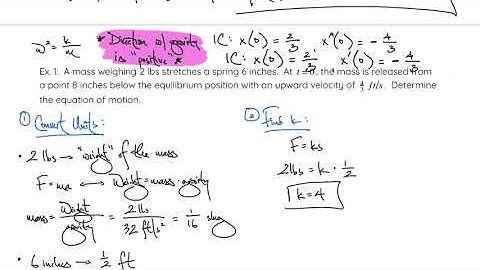 ω² = k/m
* Direction w/ gravity is "positive" *
IC: x(0) = 2/3 x'(0) = -4/3
IC: x(0) = 2/3 x'(0) = -4/3
Ex. 1: A mass weighing 2 lbs stretches a spring 6 inches. At t = 0, the mass is released from
a point 8 inches below the equilibrium position with an upward velocity of 4/3 ft/s. Determine
the equation of motion.
① Convert Units:
• 2 lbs → "weight" of the mass
F = ma ↔ Weight = mass · gravity
mass = Weight/gravity = 2 lbs/32 ft/s² = 1/16 slug
• 6 inches → 1/2 ft
② Find k:
F = ks
2 lbs = k · 1/2
k = 4